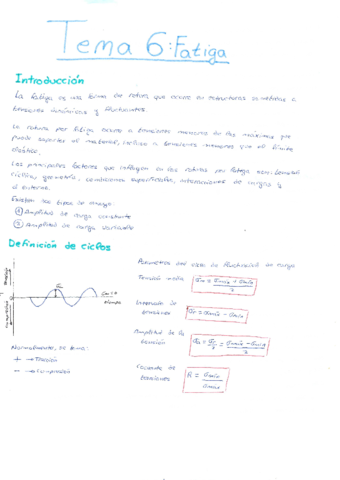 Tema 6: Fatiga
Introducción
La fatiga es una forma de rotura que ocurre en estructuras sometidas a
tensiones dinámicas y fluctuantes.
La rotura por fatiga ocurre a tensiones menores de las máximas que
puede soportar el material, incluso a tensiones menores que el límite
elástico.
Los principales factores que influyen en la rotura por fatiga son: tensión
cíclica, geometría, condiciones superficiales, interacciones de cargas y
el entorno.
Existen dos tipos de cargas:
① Amplitud de carga constante
② Amplitud de carga variable
Definición de ciclos
Parámetros del ciclo de fluctuación de carga
Tensión media
σm = σmáx + σmín / 2
Intervalo de
tensiones
σr = σmáx - σmín
Amplitud de la
tensión
σa = σr / 2 = σmáx - σmín / 2
Cociente de
tensiones
R = σmín / σmáx
tiempo
Normalmente, se toma:
+ → Tracción
- → Compresión